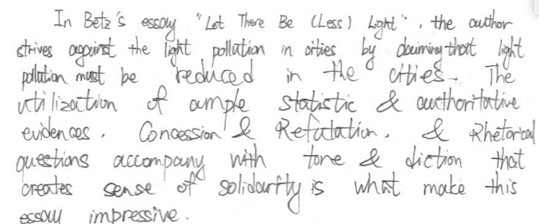 In Betz's essay "Let There Be (Less) Light", the author
strives against the light pollution in cities by claiming that light
pollution must be reduced in the cities. The
utilization of ample statistic & authoritative
evidences, Concession & Refutation, & Rhetorical
questions accompany with tone & diction that
creates sense of solidarity is what make this
essay impressive.